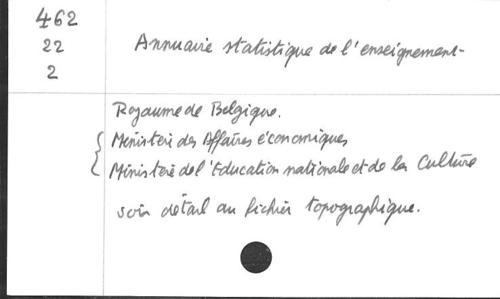 462
22
2
Annuaire statistique de l'enseignement
Royaume de Belgique.
Ministère des Affaires économiques
Ministère de l'Education nationale et de la Culture
voir détail au fichier topographique.